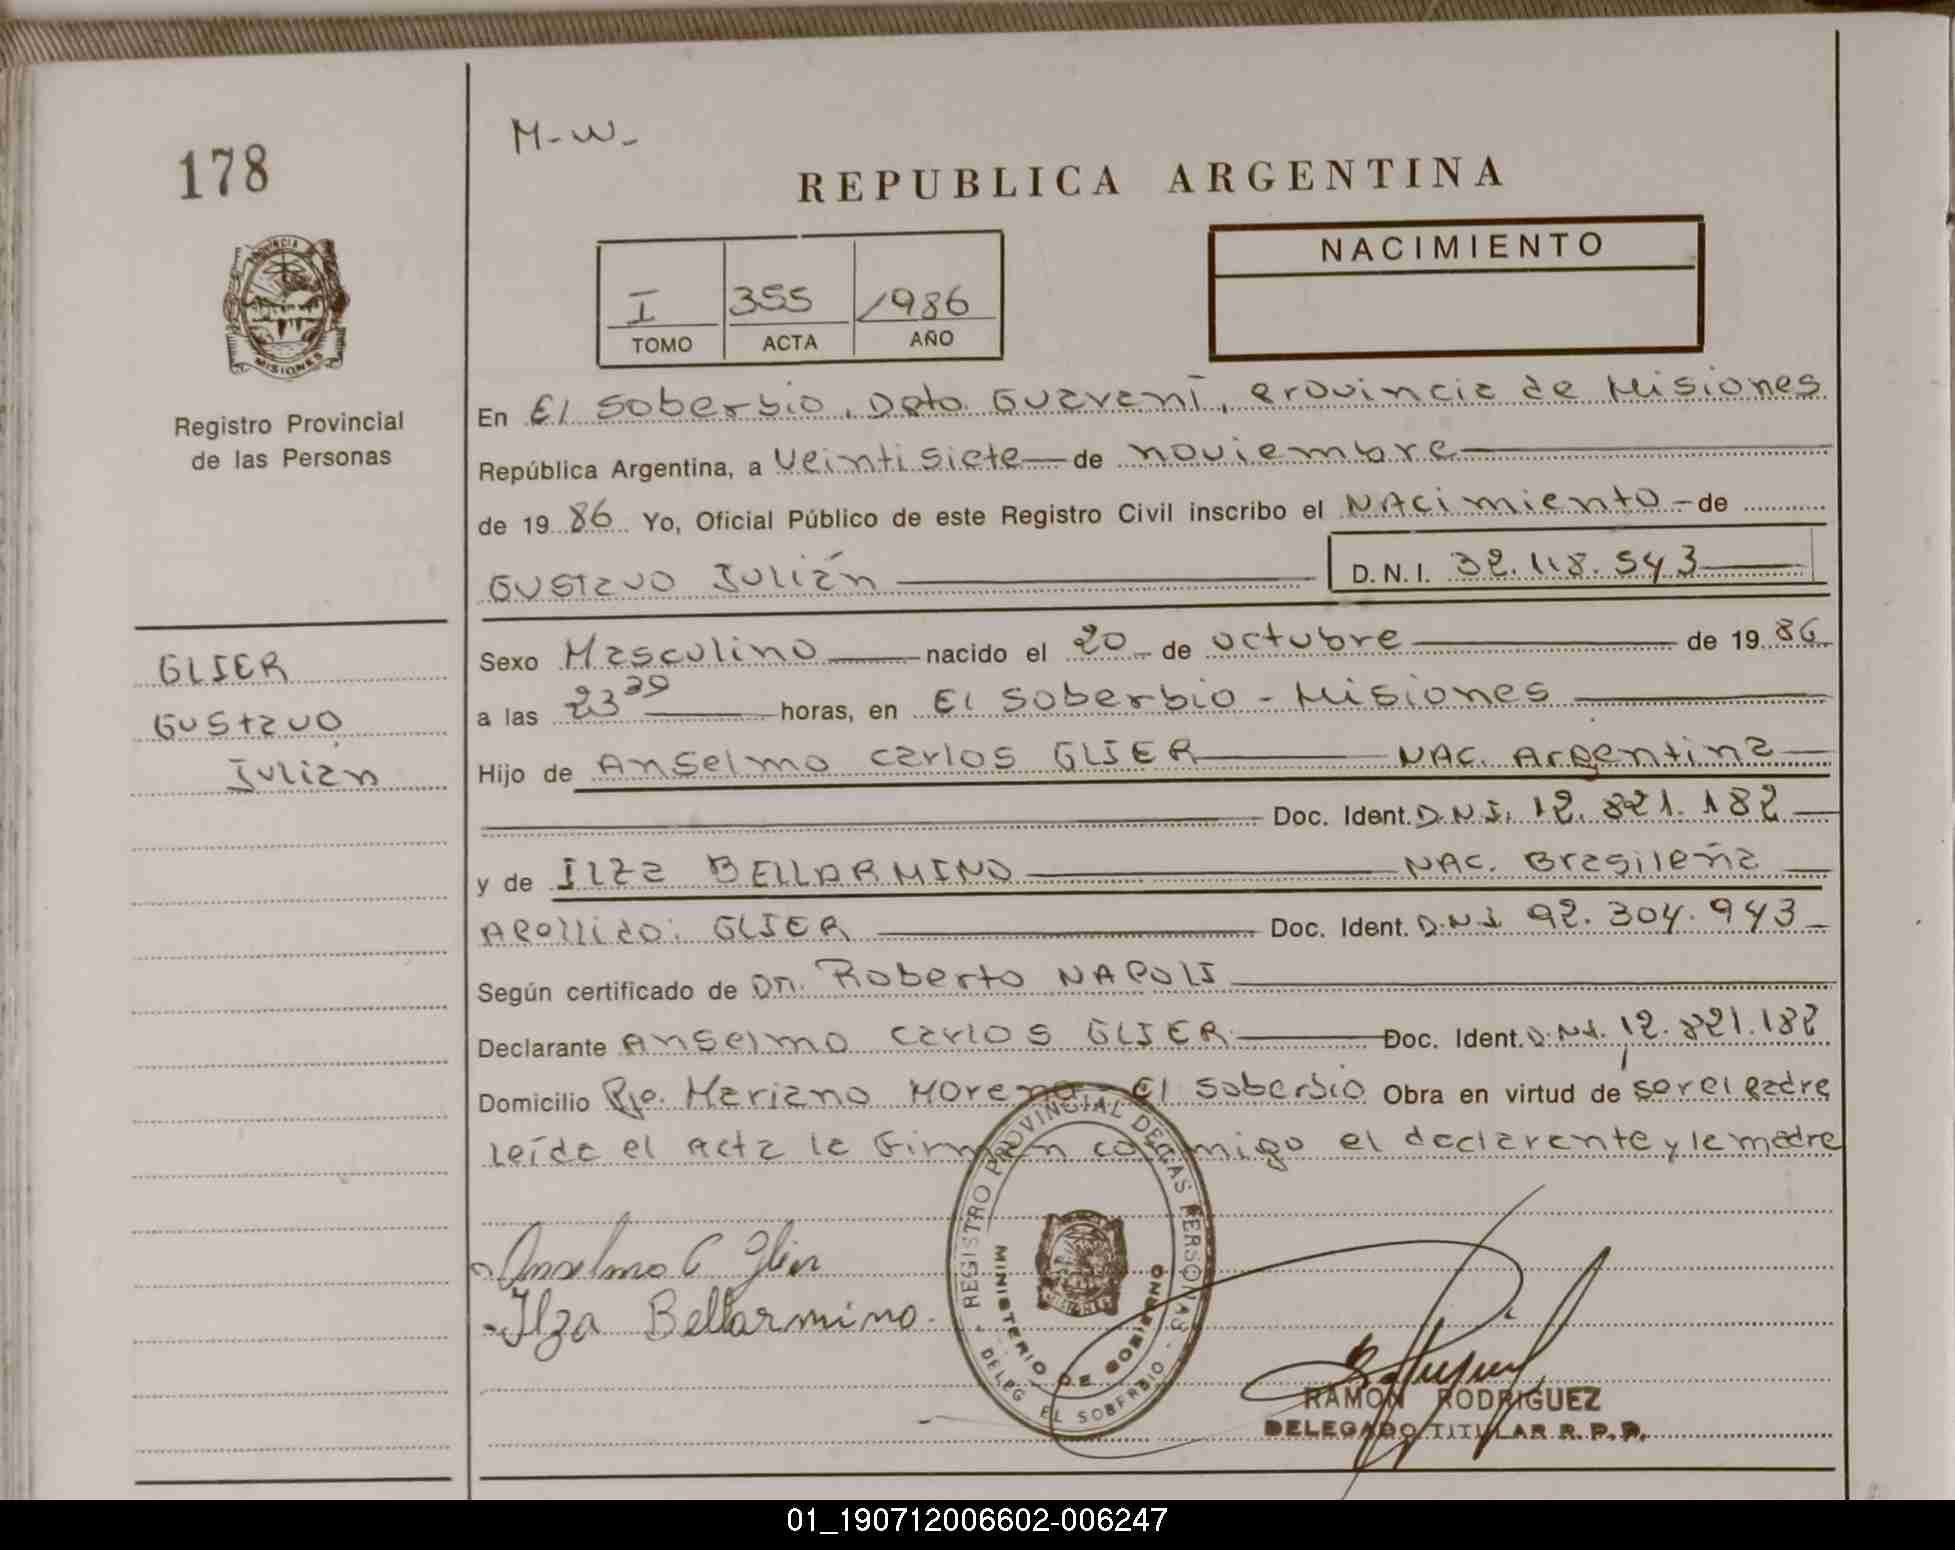 178
M-W-
REPUBLICA ARGENTINA
PROVINCIA
MISIONES
Registro Provincial
de las Personas
I 355 1986
TOMO ACTA AÑO
NACIMIENTO
En El Soberbio, Dpto. Guaraní, Provincia de Misiones
República Argentina, a Veintisiete de noviembre
de 19 86 Yo, Oficial Público de este Registro Civil inscribo el NAcimiento - de
Gustavo Julián D.N.I. 32.118.543
GLIER
Gustavo
Julian
Sexo Masculino nacido el 20 de octubre de 19 86
a las 23 30 horas, en El Soberbio - Misiones
Hijo de Anselmo Carlos GLIER NAC. Argentina
Doc. Ident. D.N.I. 12.821.182
y de Ilza BELLARMINO NAC. Brasileña
Apellido: GLIER Doc. Ident. D.N.I 92.304.943
Según certificado de Dn. Roberto NAPOLI
Declarante Anselmo Carlos GLIER Doc. Ident. D.N.I. 12.821.182
Domicilio Pje. Mariano Moreno - El Soberbio Obra en virtud de ser el padre
Leída el Acta la firman conmigo el declarante y la madre
Anselmo C Glier
Ilza Bellarmino.
REGISTRO PROVINCIAL DE LAS PERSONAS
MINISTERIO DE GOBIERNO
DELEG. EL SOBERBIO
RAMON RODRIGUEZ
DELEGADO TITULAR R.P.P.
01_190712006602-006247